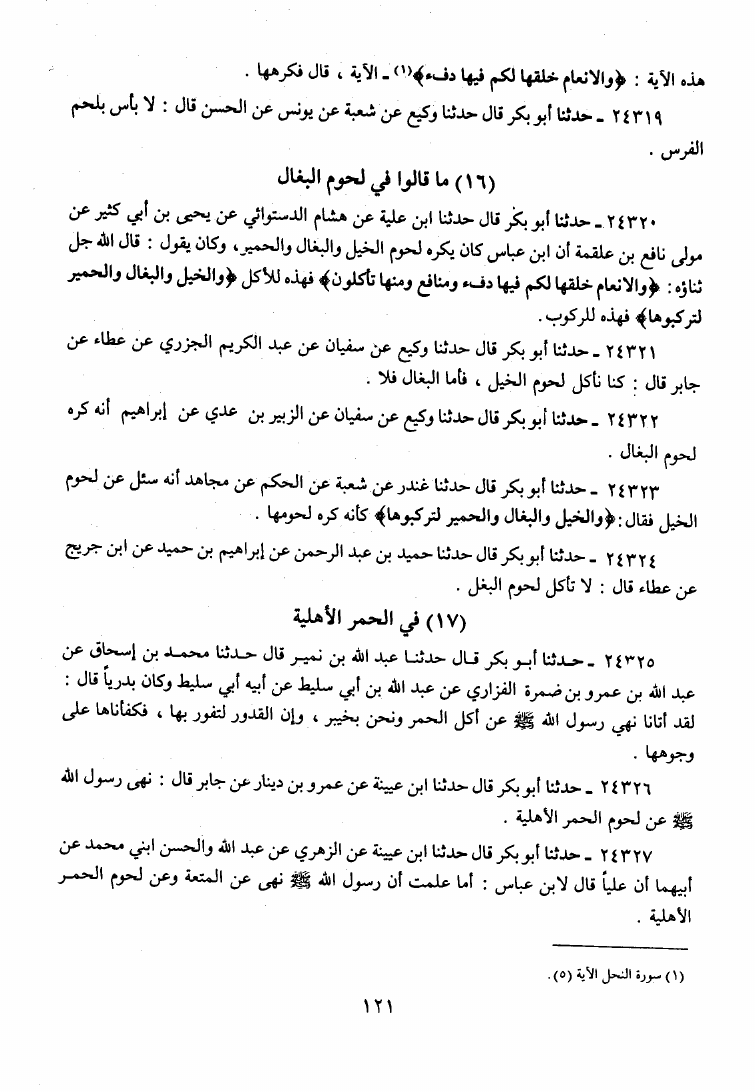 هذه الآية : ﴿والانعام خلقها لكم فيها دفء﴾(١) ـ الآية ، قال فكرهها .
٢٤٣١٩ ـ حدثنا أبو بكر قال حدثنا وكيع عن شعبة عن يونس عن الحسن قال : لا بأس بلحم
الفرس .
(١٦) ما قالوا في لحوم البغال
٢٤٣٢٠ ـ حدثنا أبو بكر قال حدثنا ابن علية عن هشام الدستوائي عن يحيى بن أبي كثير عن
مولى نافع بن علقمة أن ابن عباس كان يكره لحوم الخيل والبغال والحمير، وكان يقول : قال الله جل
ثناؤه: ﴿والانعام خلقها لكم فيها دفء ومنافع ومنها تأكلون﴾ فهذه للأكل ﴿والخيل والبغال والحمير
لتركبوها﴾ فهذه للركوب.
٢٤٣٢١ ـ حدثنا أبو بكر قال حدثنا وكيع عن سفيان عن عبد الكريم الجزري عن عطاء عن
جابر قال : كنا نأكل لحوم الخيل ، فأما البغال فلا .
٢٤٣٢٢ ـ حدثنا أبو بكر قال حدثنا وكيع عن سفيان عن الزبير بن عدي عن إبراهيم أنه كره
لحوم البغال .
٢٤٣٢٣ ـ حدثنا أبو بكر قال حدثنا غندر عن شعبة عن الحكم عن مجاهد أنه سئل عن لحوم
الخيل فقال: ﴿والخيل والبغال والحمير لتركبوها﴾ كأنه كره لحومها .
٢٤٣٢٤ ـ حدثنا أبو بكر قال حدثنا حميد بن عبد الرحمن عن إبراهيم بن حميد عن ابن جريج
عن عطاء قال : لا تأكل لحوم البغل .
(١٧) في الحمر الأهلية
٢٤٣٢٥ ـ حدثنا أبو بكر قال حدثنا عبد الله بن نمير قال حدثنا محمد بن إسحاق عن
عبد الله بن عمرو بن ضمرة الفزاري عن عبد الله بن أبي سليط عن أبيه أبي سليط وكان بدرياً قال :
لقد أتانا نهي رسول الله ﷺ عن أكل الحمر ونحن بخيبر ، وإن القدور لتفور بها ، فكفأناها على
وجوهها .
٢٤٣٢٦ ـ حدثنا أبو بكر قال حدثنا ابن عيينة عن عمرو بن دينار عن جابر قال : نهى رسول الله
ﷺ عن لحوم الحمر الأهلية .
٢٤٣٢٧ ـ حدثنا أبو بكر قال حدثنا ابن عيينة عن الزهري عن عبد الله والحسن ابني محمد عن
أبيهما أن علياً قال لابن عباس : أما علمت أن رسول الله ﷺ نهى عن المتعة وعن لحوم الحمر
الأهلية .
(١) سورة النحل الآية (٥).
١٢١